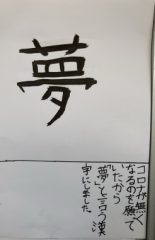 夢
コロナが無く
なるのを願って
いたから
「夢」と言う漢
字にしました